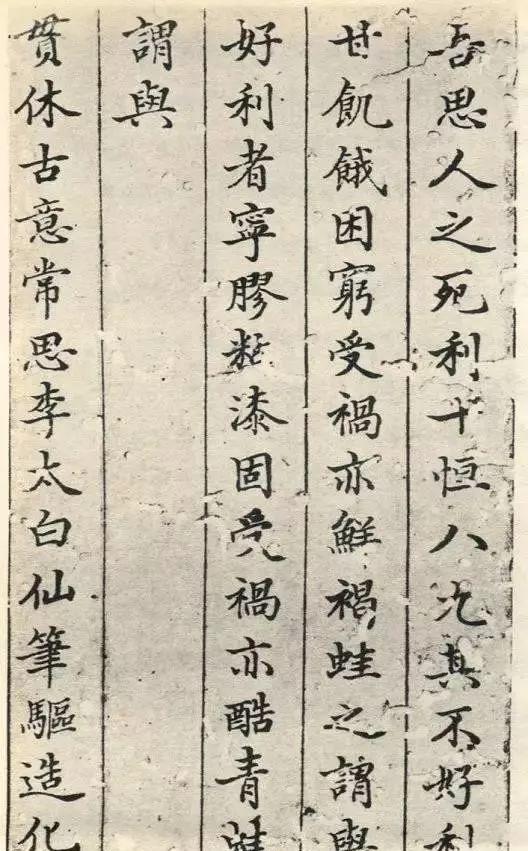 吾思人之死利十恒八九真不好利
甘飢餓困窮受禍亦鮮褐蛙之謂與
好利者寧膠黏漆固受禍亦酷青蛙
謂與
貫休古意常思李太白仙筆驅造化